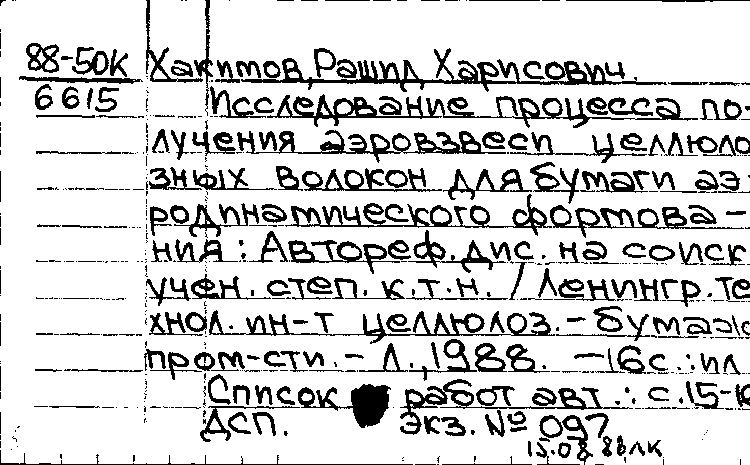 88-50К Хакимов, Рашид Харисович.
6615 Исследование процесса по-
лучения аэровзвеси целлюло
зных волокон для бумаги аэ
родинамического формова-
ния: Автореф. дис. на соиск
учен. степ. к.т.н. / Ленингр. те
хнол. ин-т целлюлоз.-бумаж
пром-сти. - Л., 1988. - 16 с.: ил
Список работ авт.: с. 15-16
ДСП. Экз. № 097
15.08 88 ЛК